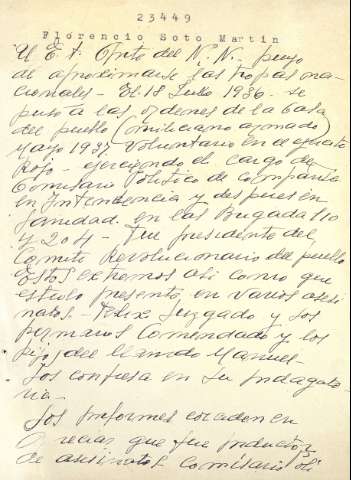 23449
Florencio Soto Martin
U. E. t. Opto del N. N., puso
de aproximarse las tropas na-
cionales - El 18 Julio 1936. se
puso a las ordenes de la Casa
del pueblo (miliciano armado)
mayo 1937 Voluntario en el ejercito
Rojo - ejerciendo el cargo de
Comisario Politico de Compañia
en Intendencia y despues en
Sanidad en las Brigadas 110
y 204 - Fue presidente del
Comite Revolucionario del pueblo
Estos extremos asi como que
estubo presente en varios asesi
natos - Felix Juzgado y los
hermanos Comendado y los
hijos del llamado Manuel -
Los confiesa en su indagato-
ria -
Los informes coinciden en
que fue inductor
de asesinatos Comisario